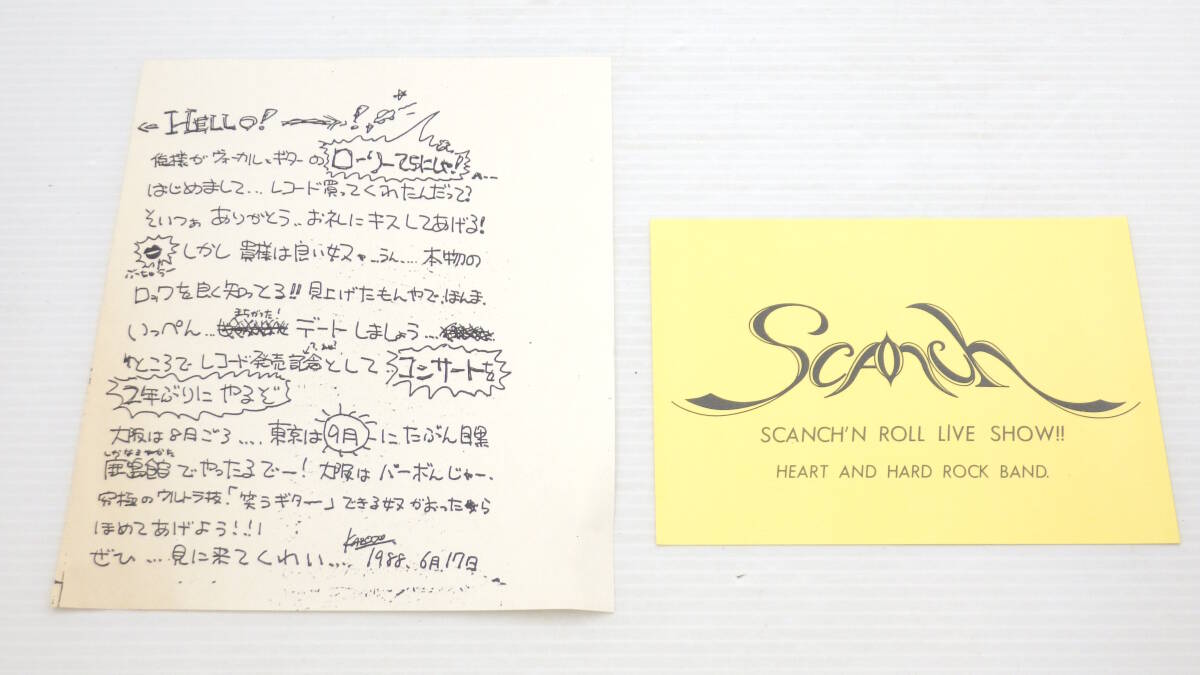 HELLO! !
俺様がヴォーカル、ギターの ローリーてらにしや!
はじめまして… レコード買ってくれたんだって?
そいつぁ ありがとう.. お礼にキスしてあげる!
しかし 貴様は良い奴ゃ...うん…. 本物の
ロックを良く知ってる!! 見上げたもんやで、ほんま、
まちがった!
いっぺん… デートしましょう….
ところで レコード発売記念として コンサートを
2年ぶりに やるぞ
大阪は8月ごろ…. 東京は9月にたぶん目黒
しかなるやかた
鹿鳴館でやったるでー! 大阪は バーボンじゃー、
究極のウルトラ技、「笑うギター」できる奴がおったら
ほめてあげよう!!!
ぜひ … 見に来てくれい….
1988. 6月17日
SCANCH
SCANCH'N ROLL LIVE SHOW!!
HEART AND HARD ROCK BAND.